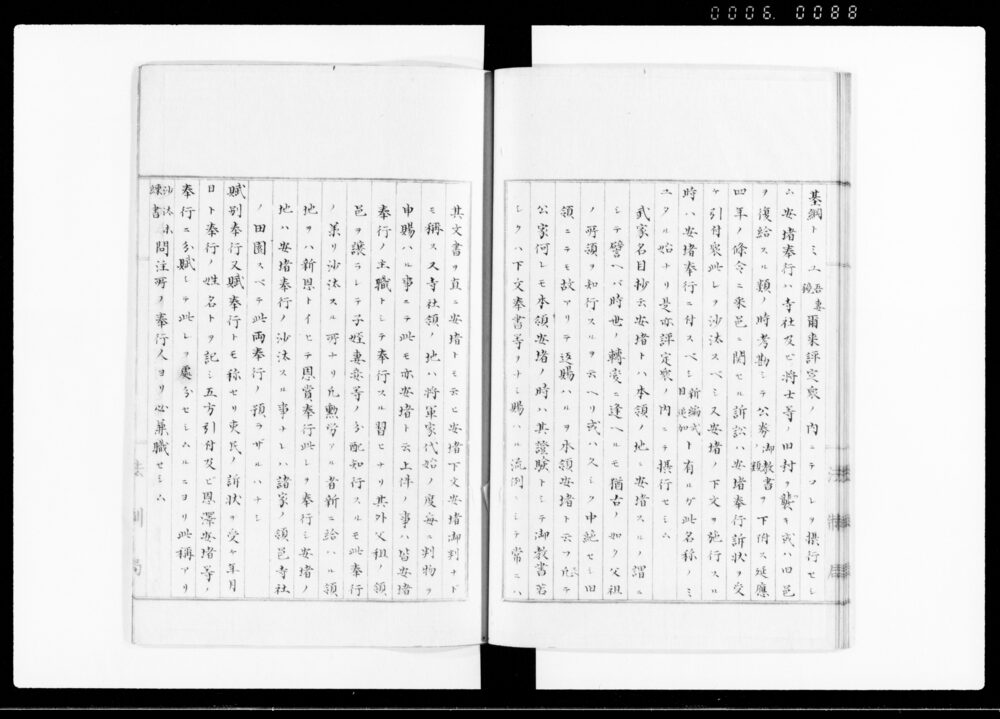 0006. 0088
基綱トミユ吾妻鏡爾来評定衆ノ内ニテコレヲ摂行セシ
ム安堵奉行ハ寺社及ビ将士等ノ旧封ヲ襲キ或ハ旧邑
ヲ復給スル類ノ時考勘シテ公券御教書ノ類ヲ下附ス延應
四年ノ條令ニ釆邑ニ関セル訴訟ハ安堵奉行訴状ヲ受
ケ引付衆此レヲ沙汰スベシ又安堵ノ下文ヲ施行スル
時ハ安堵奉行ニ付スベシ新編式目追加ト有ルガ此名称ノミ
ユタル始ナリ是亦評定衆ノ内ニテ摂行セシム
武家名目抄云安堵トハ本領ノ地ニ安堵スルノ謂ル
シテ譬ヘバ時世ノ轉変ニ逢ヘルモ猶古ノ如ク父祖
ノ所領ヲ知行スルヲ云ヘリ或ハ久シク中絶セシ田
領ニテモ故アリテ返賜ハルヲ本領安堵ト云フ凡テ
公家何レモ本領安堵ノ時ハ其證験トシテ御教書若
シクハ下文奉書等ヲナシ賜ハル流例ニシテ常ニハ
其文書ヲ直ニ安堵トモ云ヒ安堵下文安堵御判ナド
モ稱ス又寺社領ノ地ハ将軍家代始ノ度毎ニ判物ヲ
申賜ハル事ニテ此モ亦安堵ト云上件ノ事ハ皆安堵
奉行ノ主職トシテ奉行スル習ヒナリ其外父祖ノ領
邑ヲ譲ラレテ子姪妻妾等ノ分配知行スルモ此奉行
ノ差リ沙汰スル所ナリ凡勲労アル者新ニ給ハル領
地ヲハ新恩トイヒテ恩賞奉行此レヲ奉行シ安堵ノ
地ハ安堵奉行ノ沙汰スル事ナレハ諸家ノ領邑寺社
ノ田園スベテ此両奉行ノ預ラザルハナシ
賦別奉行又賦奉行トモ称セリ吏民ノ訴状ヲ受ケ年月
日ト奉行ノ姓名トヲ記シ五方引付及ビ恩澤安堵等ノ
奉行ニ分賦シテ此レヲ處分セシムルニヨリ此稱アリ
沙汰未練書問注所ノ奉行人ヨリ必兼職セシム